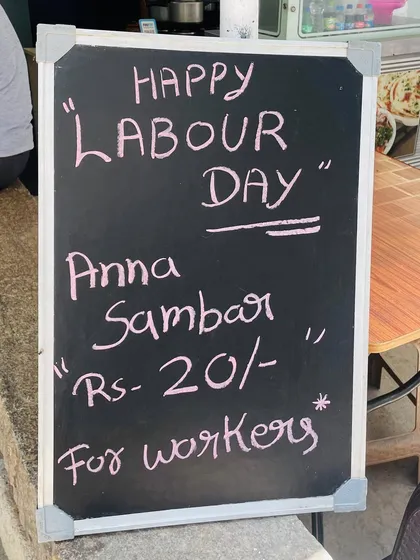 HAPPY
"LABOUR
DAY"
Anna
Sambar
"Rs- 20/-"
For workers*